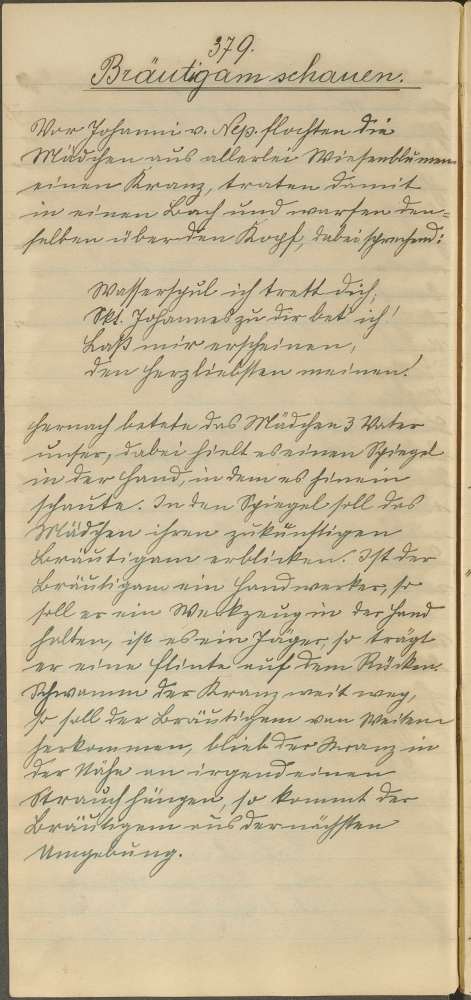 379.
Bräutigam schauen.
Vor Johanni v. Nep. flochten die
Mädchen aus allerlei Wiesenblumen
einen Kranz, traten damit
in einen Bach und warfen den=
selben über den Kopf, dabei sprechend:
Wasserspul ich trett dich,
Skt. Johannes zu dir bet' ich!
Laß mir erscheinen,
den Herzliebsten meinen!
Hernach betete das Mädchen 3 Vater
unser, dabei hielt es einen Spiegel
in der Hand, in dem es hinein
schaute. In den Spiegel soll das
Mädchen ihren zukünftigen
Bräutigam erblicken. Ist der
Bräutigam ein Handwerker, so
soll er ein Werkzeug in der Hand
halten, ist es ein Jäger, so trägt
er eine Flinte auf dem Rücken.
Schwamm der Kranz weit weg,
so soll der Bräutigam von Weitem
herkommen, blieb der Kranz in
der Nähe an irgend einen
Strauch hängen, so kommt der
Bräutigam aus der nächsten
Umgebung.